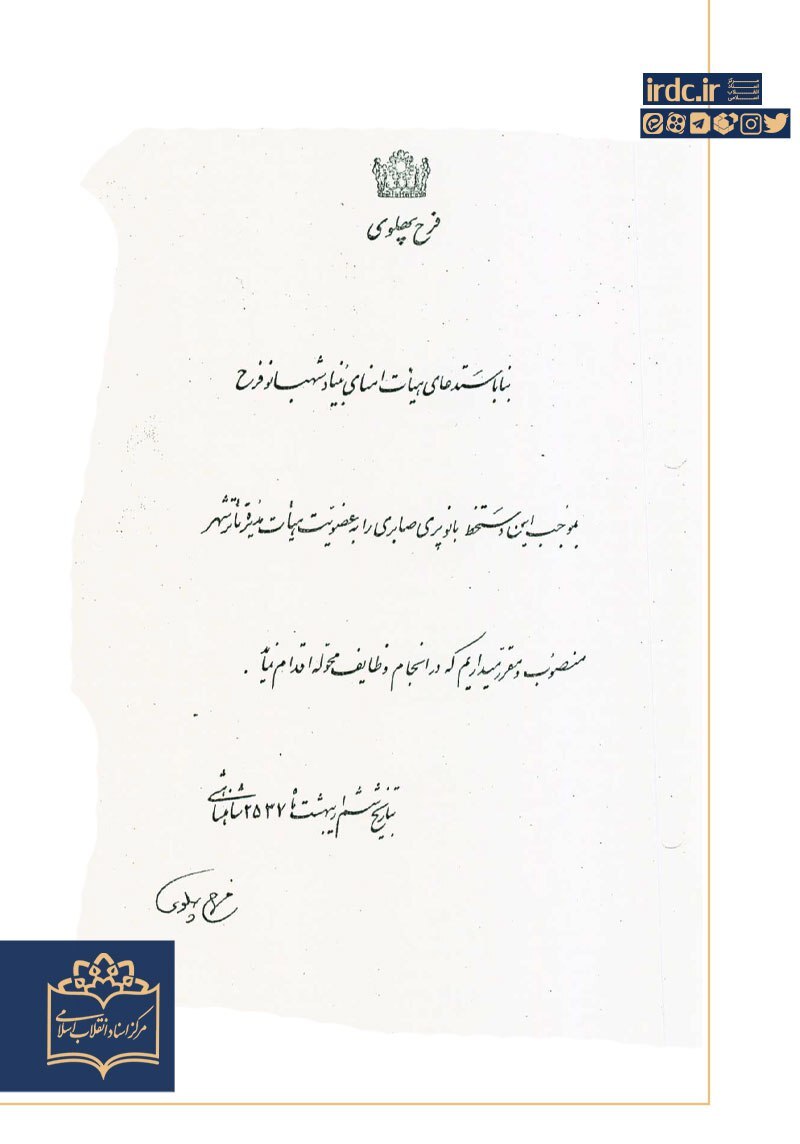 irdc.ir
مرکز
اسناد
انقلاب
اسلامی
فرح پهلوی
بنا باستدعای هیأت امنای بنیاد شهبانو فرح
بموجب این دستخط بانو پری صابری را به عضویت هیأت مدیرهٔ تأتر شهر
منصوب و مقرر میداریم که در انجام وظایف محوّله اقدام نماید .
بتاریخ ششم اردیبهشت ماه ۲۵۳۷ شاهنشاهی
فرح پهلوی
مرکز اسناد انقلاب اسلامی